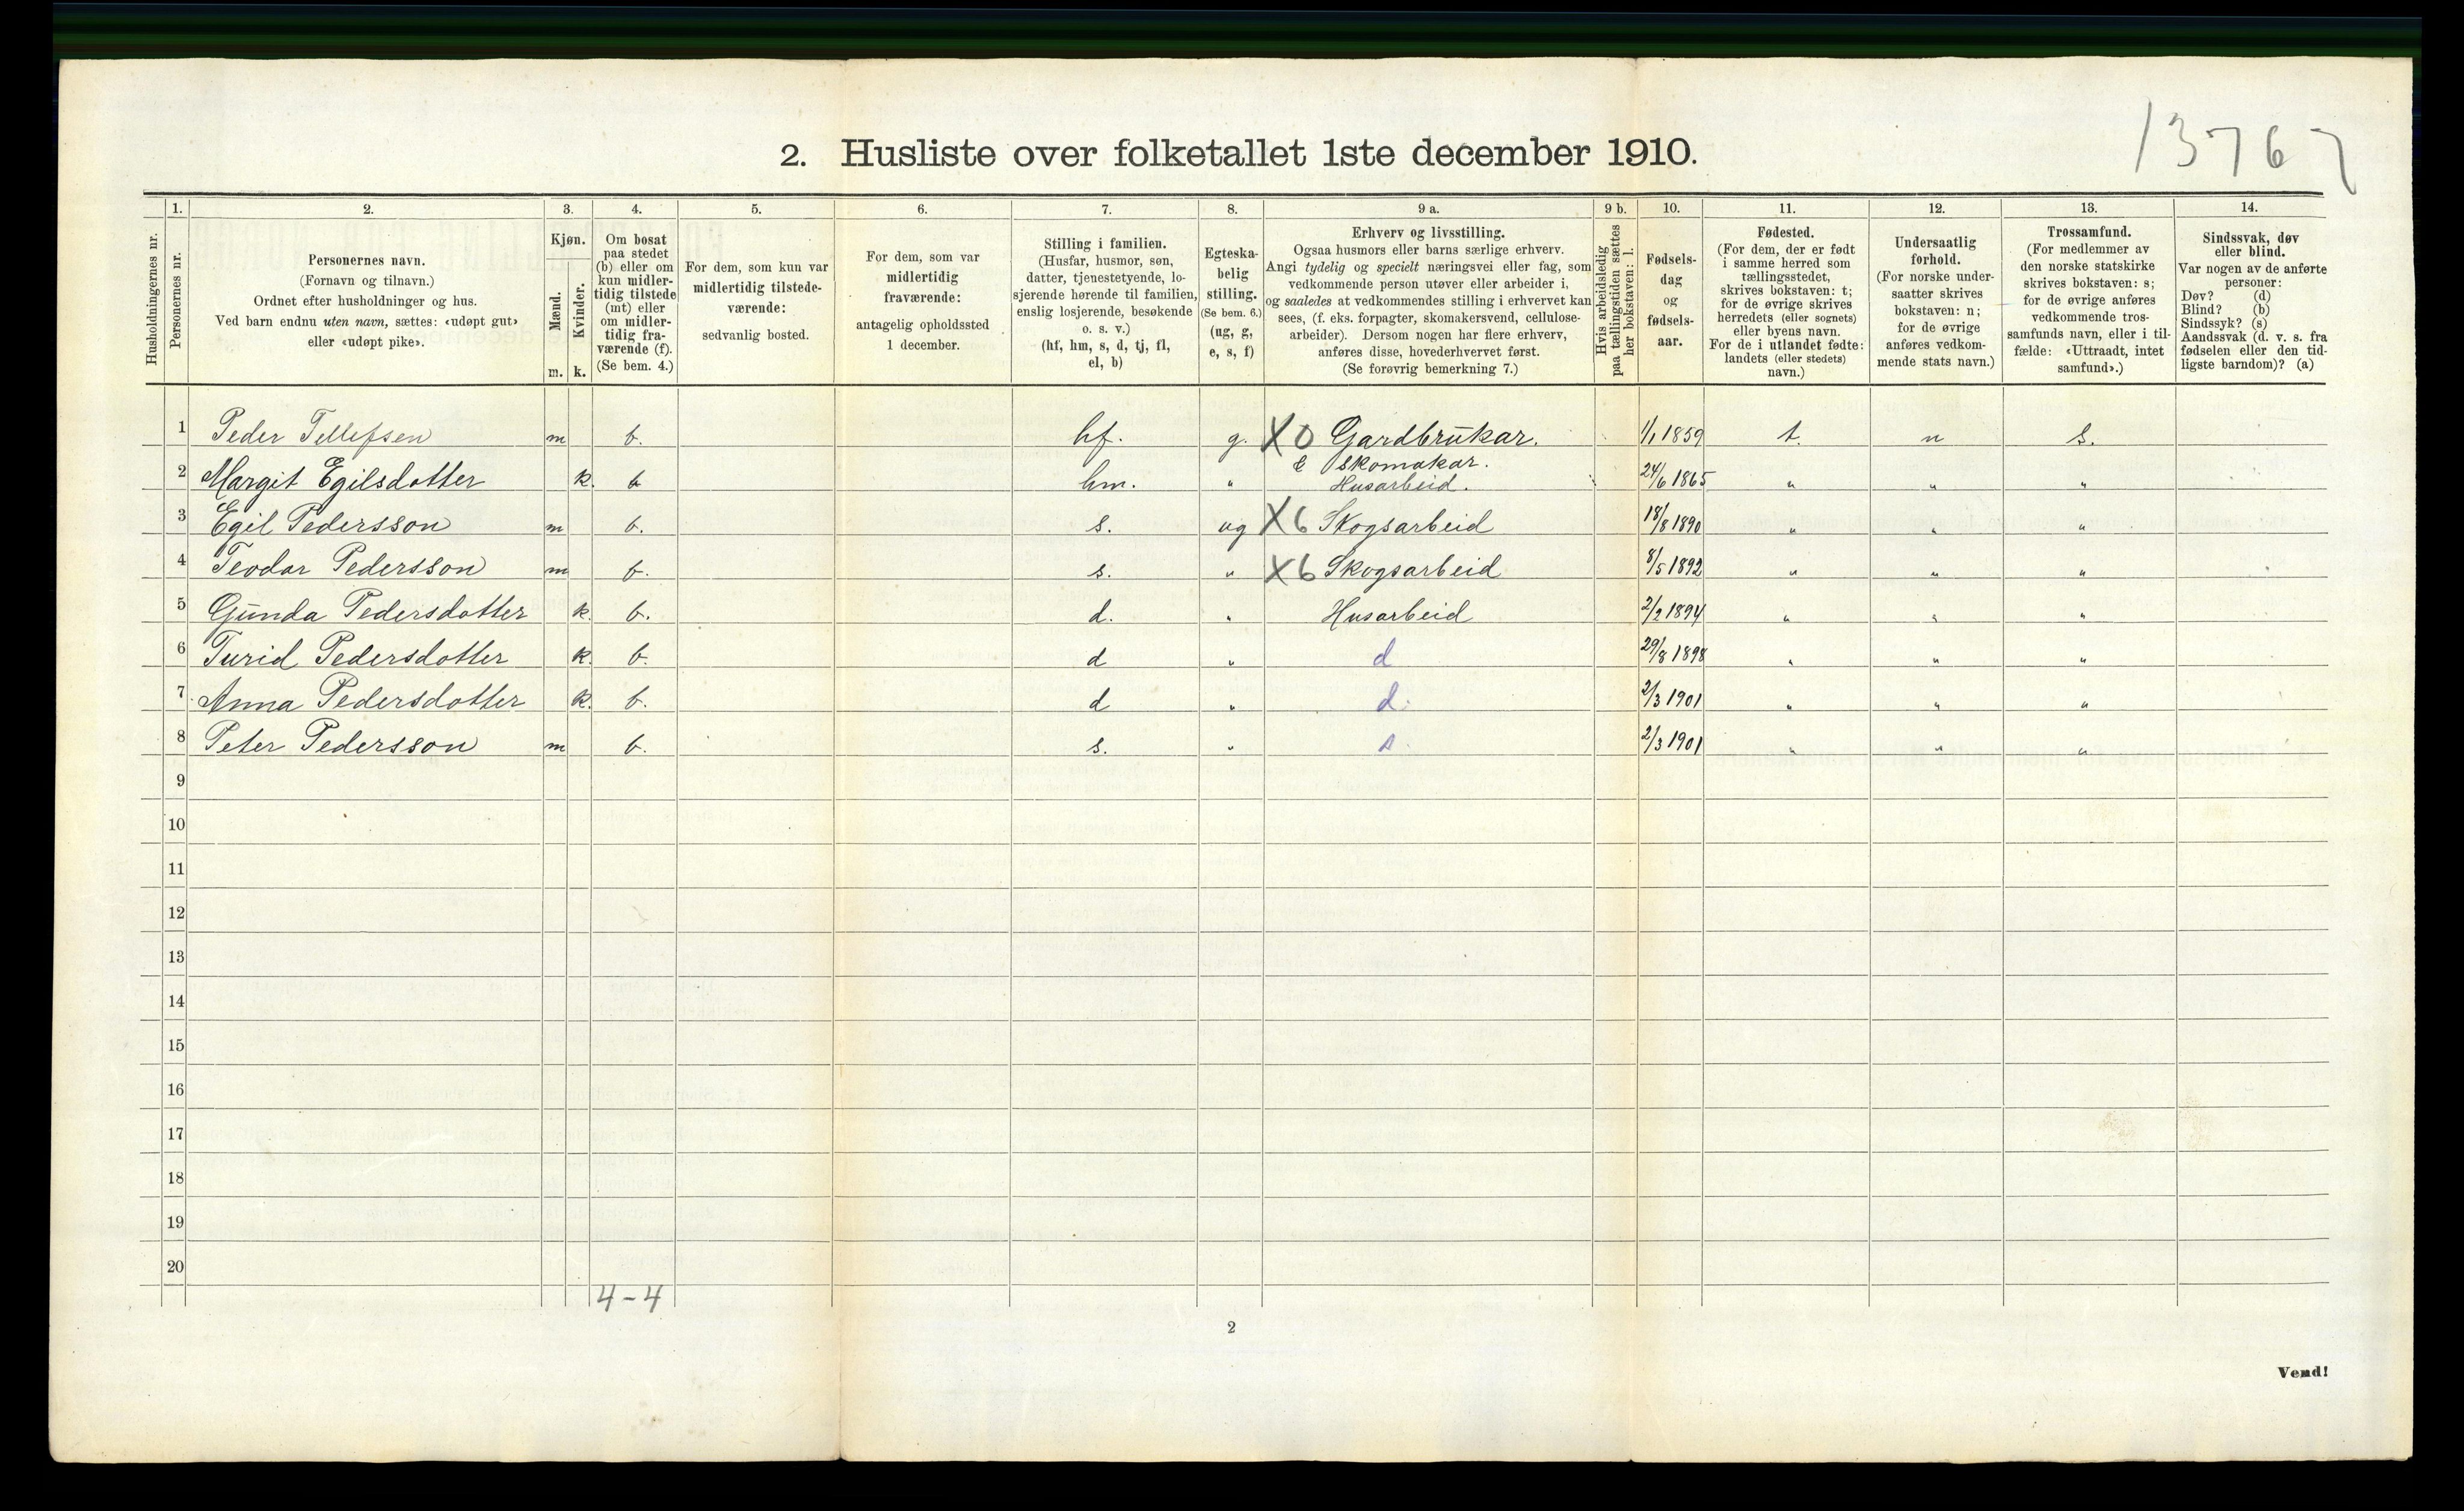 13767
2. Husliste over folketallet 1ste december 1910.
Husholdningernes nr.
1.
Personernes nr.
2.
Personernes navn.
(Fornavn og tilnavn.)
Ordnet efter husholdninger og hus.
Ved barn endnu uten navn, sættes: «udøpt gut»
eller «udøpt pike».
3.
Kjøn.
Mænd.
m.
Kvinder.
k.
4.
Om bosat
paa stedet
(b) eller om
kun midler-
tidig tilstede
(mt) eller
om midler-
tidig fra-
værende (f).
(Se bem. 4.)
5.
For dem, som kun var
midlertidig tilstede-
værende:
sedvanlig bosted.
6.
For dem, som var
midlertidig
fraværende:
antagelig opholdssted
1 december.
7.
Stilling i familien.
(Husfar, husmor, søn,
datter, tjenestetyende, lo-
sjerende hørende til familien,
enslig losjerende, besøkende
o. s. v.)
(hf, hm, s, d, tj, fl,
el, b)
8.
Egteska-
belig
stilling.
(Se bem. 6.)
(ug, g,
e, s, f)
9 a.
Erhverv og livsstilling.
Ogsaa husmors eller barns særlige erhverv.
Angi tydelig og specielt næringsvei eller fag, som
vedkommende person utøver eller arbeider i,
og saaledes at vedkommendes stilling i erhvervet kan
sees, (f. eks. forpagter, skomakersvend, cellulose-
arbeider). Dersom nogen har flere erhverv,
anføres disse, hovederhvervet først.
(Se forøvrig bemerkning 7.)
9 b.
Hvis arbeidsledig
paa tællingstiden sættes
her bokstaven: l.
10.
Fødsels-
dag
og
fødsels-
aar.
11.
Fødested.
(For dem, der er født
i samme herred som
tællingsstedet,
skrives bokstaven: t;
for de øvrige skrives
herredets (eller sognets)
eller byens navn.
For de i utlandet fødte:
landets (eller stedets)
navn.)
12.
Undersaatlig
forhold.
(For norske under-
saatter skrives
bokstaven: n;
for de øvrige
anføres vedkom-
mende stats navn.)
13.
Trossamfund.
(For medlemmer av
den norske statskirke
skrives bokstaven: s;
for de øvrige anføres
vedkommende tros-
samfunds navn, eller i til-
fælde: «Uttraadt, intet
samfund».)
14.
Sindssvak, døv
eller blind.
Var nogen av de anførte
personer:
Døv? (d)
Blind? (b)
Sindssyk? (s)
Aandssvak (d. v. s. fra
fødselen eller den tid-
ligste barndom)? (a)
1 Peder Tellefsen m b. hf. g. X0 Gardbrukar. 1/1 1859 t. n s.
& Skomakar.
2 Margit Egilsdotter k. b hm. " Husarbeid. 24/6 1865 " " "
3 Egil Pedersson m b. s. ug X6 Skogsarbeid 18/8 1890 " " "
4 Teodor Pedersson m b. s. " X6 Skogsarbeid 8/5 1892 " " "
5 Gunda Pedersdotter k. b. d. " Husarbeid 2/2 1894 " " "
6 Turid Pedersdotter k. b. d " d 29/8 1898 " " "
7 Anna Pedersdotter k. b. d " d. 2/3 1901 " " "
8 Peter Pedersson m b. s. " s. 2/3 1901 " " "
9
10
11
12
13
14
15
16
17
18
19
20
4-4
2
Vend!